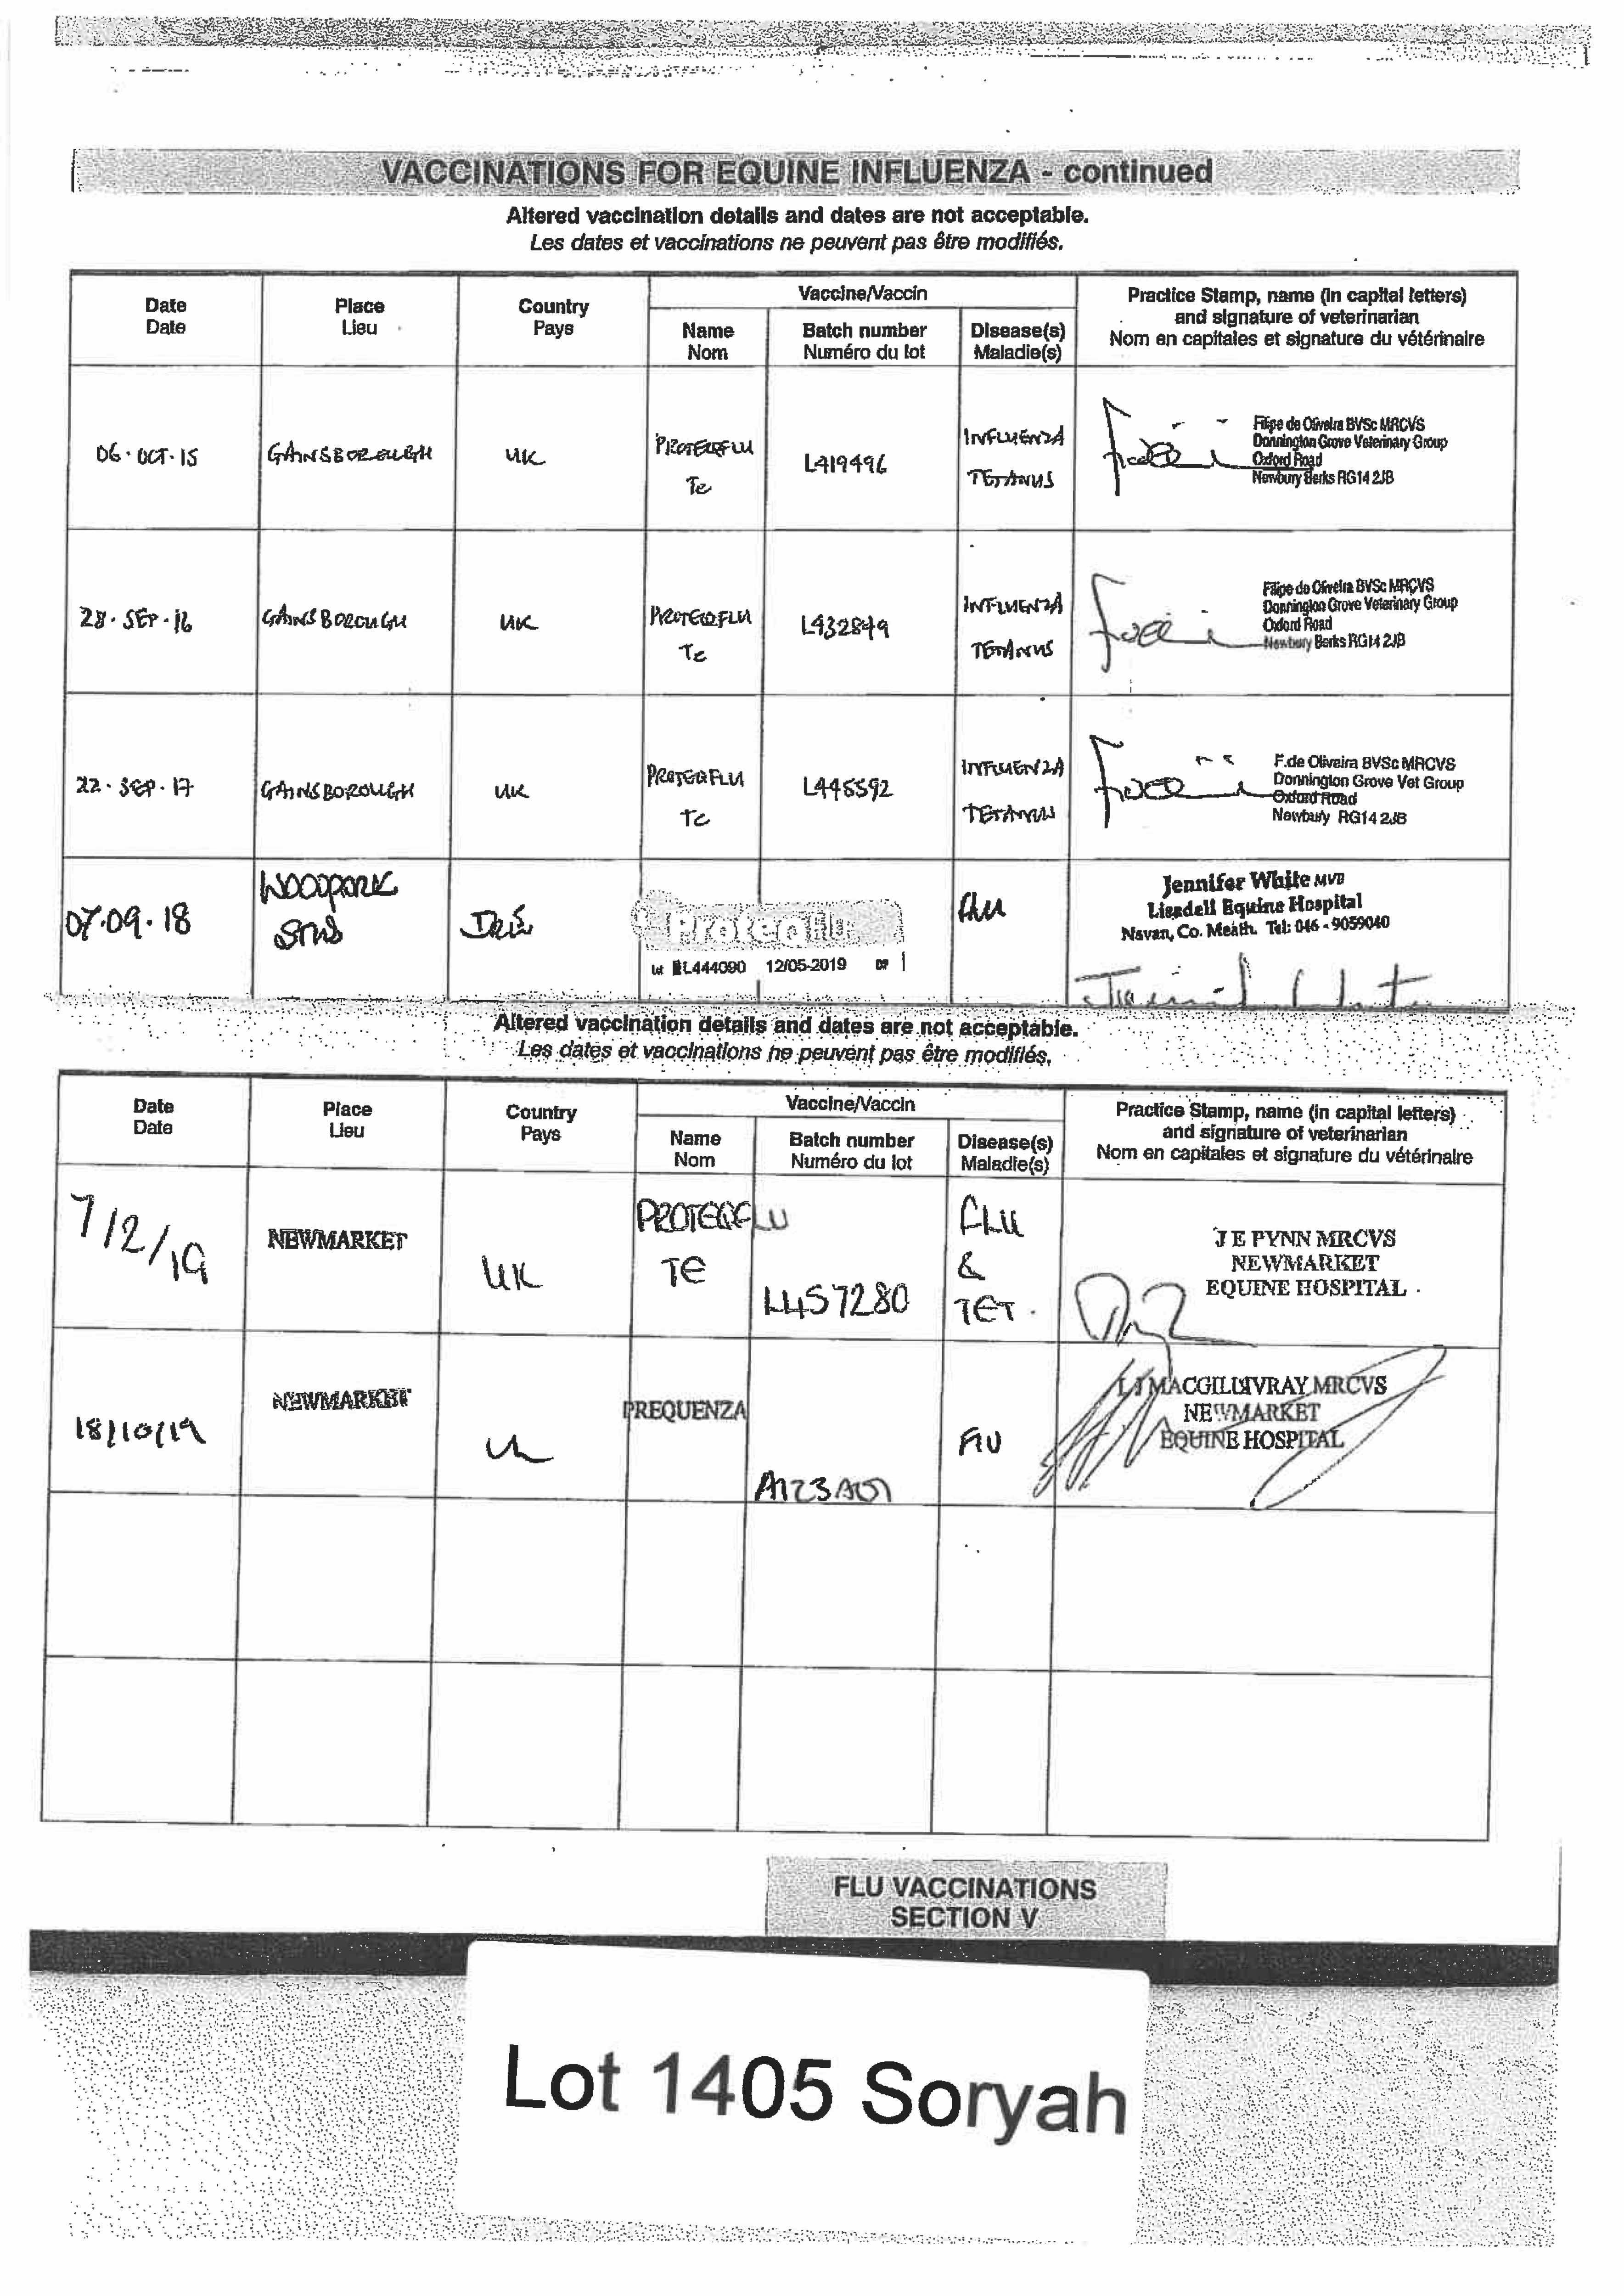 VACCINATIONS FOR EQUINE INFLUENZA - continued
Altered vaccination details and dates are not acceptable.
Les dates et vaccinations ne peuvent pas être modifiés.
Date
Date
Place
Lieu
Country
Pays
Vaccine/Vaccin
Name
Nom
Batch number
Numéro du lot
Disease(s)
Maladie(s)
Practice Stamp, name (in capital letters)
and signature of veterinarian
Nom en capitales et signature du vétérinaire
06.OCT.15
GAINSBOROUGH
UK
PROTEQFLU
Te
L419496
INFLUENZA
TETANUS
Filipe de Oliveira BVSc MRCVS
Donnington Grove Veterinary Group
Oxford Road
Newbury Berks RG14 2JB
28.SEP.16
GAINSBOROUGH
UK
PROTEQFLU
Te
L432849
INFLUENZA
TETANUS
Filipe de Oliveira BVSc MRCVS
Donnington Grove Veterinary Group
Oxford Road
Newbury Berks RG14 2JB
22.SEP.17
GAINSBOROUGH
UK
PROTEQFLU
Te
L445592
INFLUENZA
TETANUS
F.de Oliveira BVSc MRCVS
Donnington Grove Vet Group
Oxford Road
Newbury RG14 2JB
07.09.18
WOODPARK
STUD
IRE
ProteqFlu
Lot L444090 12/05-2019
FLU
Jennifer White MVB
Lisadell Equine Hospital
Navan, Co. Meath. Tel: 046 - 9059040
Altered vaccination details and dates are not acceptable.
Les dates et vaccinations ne peuvent pas être modifiés.
Date
Date
Place
Lieu
Country
Pays
Vaccine/Vaccin
Name
Nom
Batch number
Numéro du lot
Disease(s)
Maladie(s)
Practice Stamp, name (in capital letters)
and signature of veterinarian
Nom en capitales et signature du vétérinaire
7/2/19
NEWMARKET
UK
PROTEQFLU
TE
L457280
FLU
&
TET.
J E PYNN MRCVS
NEWMARKET
EQUINE HOSPITAL
18/10/19
NEWMARKET
UK
PREQUENZA
A123A01
FLU
MACGILLIVRAY MRCVS
NEWMARKET
EQUINE HOSPITAL
FLU VACCINATIONS
SECTION V
Lot 1405 Soryah